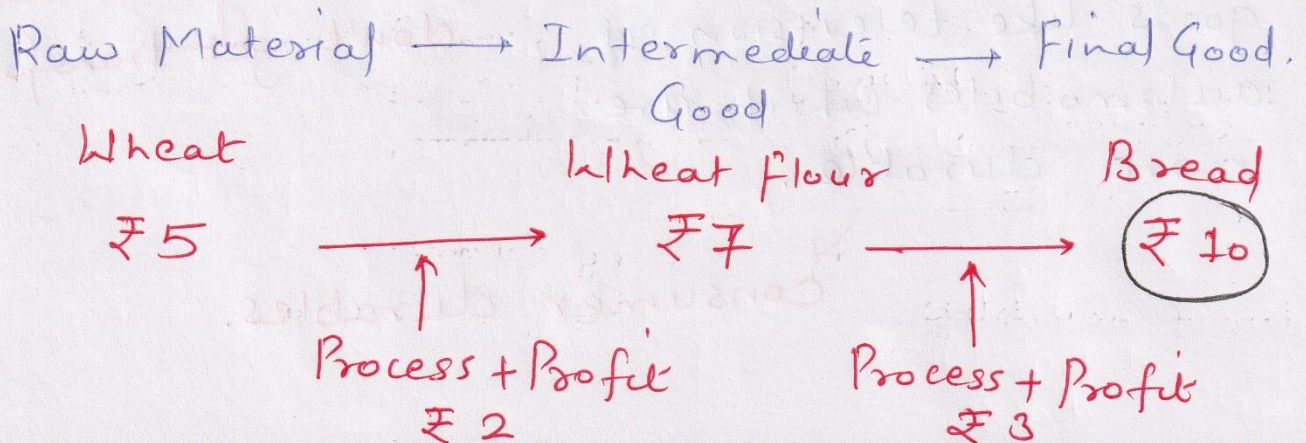 Raw Material → Intermediate → Final Good.
Good
Wheat Wheat Flour Bread
₹5 → ₹7 → ₹10
Process + Profit Process + Profit
₹2 ₹3